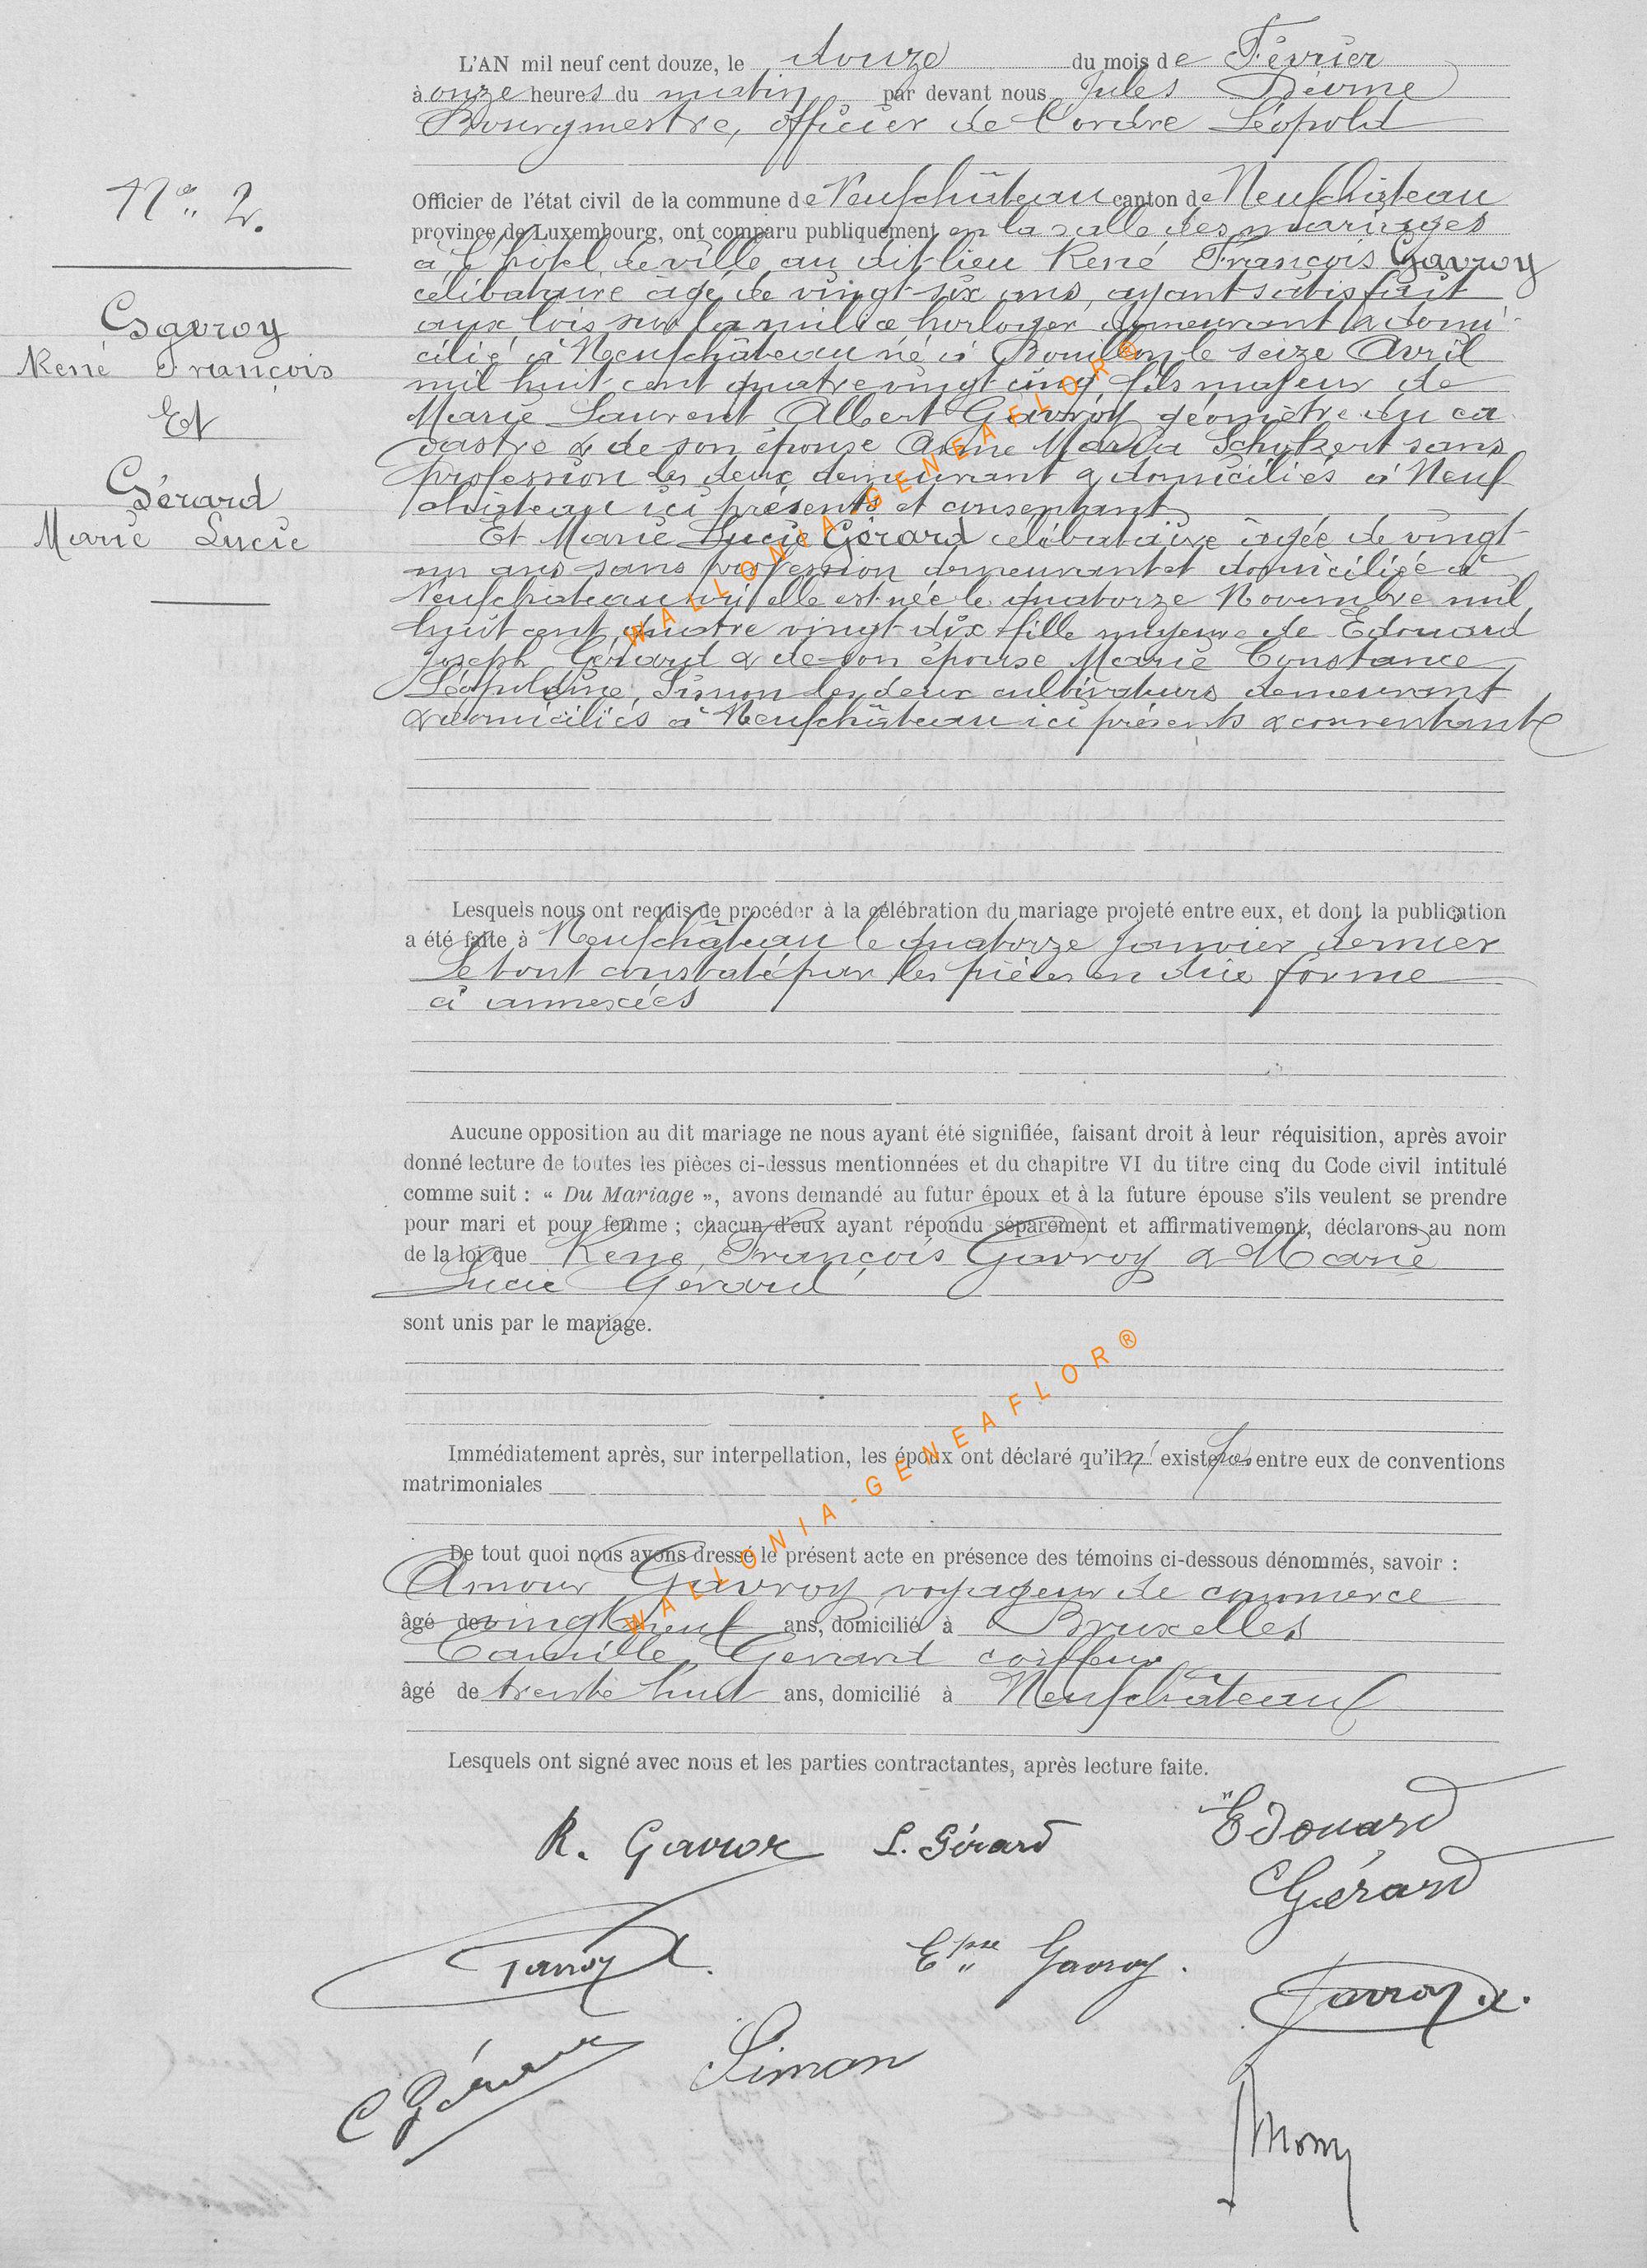 L'AN mil neuf cent douze, le douze du mois de Février
à onze heures du matin par devant nous Jules
Bourgmestre, officier de l'ordre Léopold
Officier de l'état civil de la commune de Neufchâteau canton de Neufchâteau
province de Luxembourg, ont comparu publiquement en la salle des mariages
à l'hotel de ville au dit lieu René François Gavroy
célibataire âgé de vingt-six ans, ayant satisfait
aux lois sur la milice horloger demeurant & domi-
cilié à Neufchâteau né à Bouillon le seize Avril
mil huit cent quatre vingt cinq fils majeur de
Marie Laurent Albert Gavroy géomètre du ca
dastre & de son épouse Anne Maria sans
profession les deux demeurant & domiciliés à Neuf
château ici présents et consentant
Et Marie Lucie Gérard célibataire âgée de vingt-
un ans sans profession demeurant et domiciliée à
Neufchateau où elle est née le quatorze Novembre mil
huit cent quatre vingt-dix fille majeure de Edouard
Joseph Gérard & de son épouse Marie Constance
Léopoldine Simon les deux cultivateurs demeurant
& domiciliés à Neufchâteau ici présents & consentants
N° 2.
Gavroy
René François
Et
Gérard
Marie Lucie
Lesquels nous ont requis de procéder à la célébration du mariage projeté entre eux, et dont la publication
a été faite à Neufchâteau le quatorze Janvier dernier
Le tout constaté par les pièces en due forme
ci annexées
Aucune opposition au dit mariage ne nous ayant été signifiée, faisant droit à leur réquisition, après avoir
donné lecture de toutes les pièces ci-dessus mentionnées et du chapitre VI du titre cinq du Code civil intitulé
comme suit : « Du Mariage », avons demandé au futur époux et à la future épouse s'ils veulent se prendre
pour mari et pour femme ; chacun d'eux ayant répondu séparément et affirmativement, déclarons au nom
de la loi que René François Gavroy & Marie
Lucie Gérard
sont unis par le mariage.
Immédiatement après, sur interpellation, les époux ont déclaré qu'il n'existe pas entre eux de conventions
matrimoniales
De tout quoi nous avons dressé le présent acte en présence des témoins ci-dessous dénommés, savoir :
Amour Gavroy voyageur de commerce
âgé de vingt neuf ans, domicilié à Bruxelles
Camille Gerard coiffeur
âgé de trente huit ans, domicilié à Neufchâteau
Lesquels ont signé avec nous et les parties contractantes, après lecture faite.
R. Gavroy L. Gérard Edouard
Gérard
Gavroy Epse Gavroy. Gavroy
C Gérard Simon
WALLONIA-GENEAFLOR®
WALLONIA-GENEAFLOR®